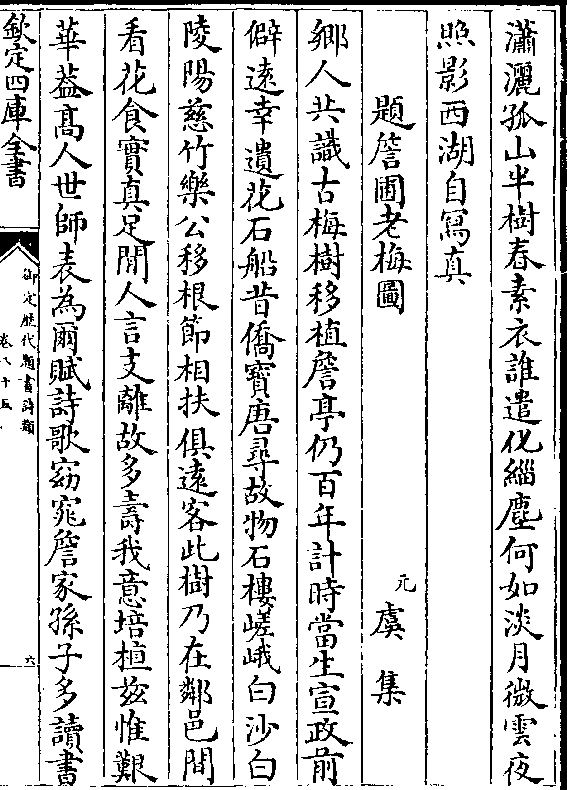 瀟灑孤山半樹春素衣誰遣化緇塵何如淡月微雲夜
照影西湖自寫真
題詹圃老梅圖
元 虞集
鄉人共識古梅樹移植詹亭仍百年計時當生宣政前
僻遠幸遺花石船昔僑寶唐尋故物石樓嵯峨白沙白
陵陽慈竹樂公移根節相扶俱遠客此樹乃在鄰邑間
看花食實真足閒人言支離故多壽我意培植兹惟艱
華葢髙人世師表為爾賦詩歌窈窕詹家孫子多讀書
欽定四庫全書
御定歷代題畫詩類
卷八十五
六